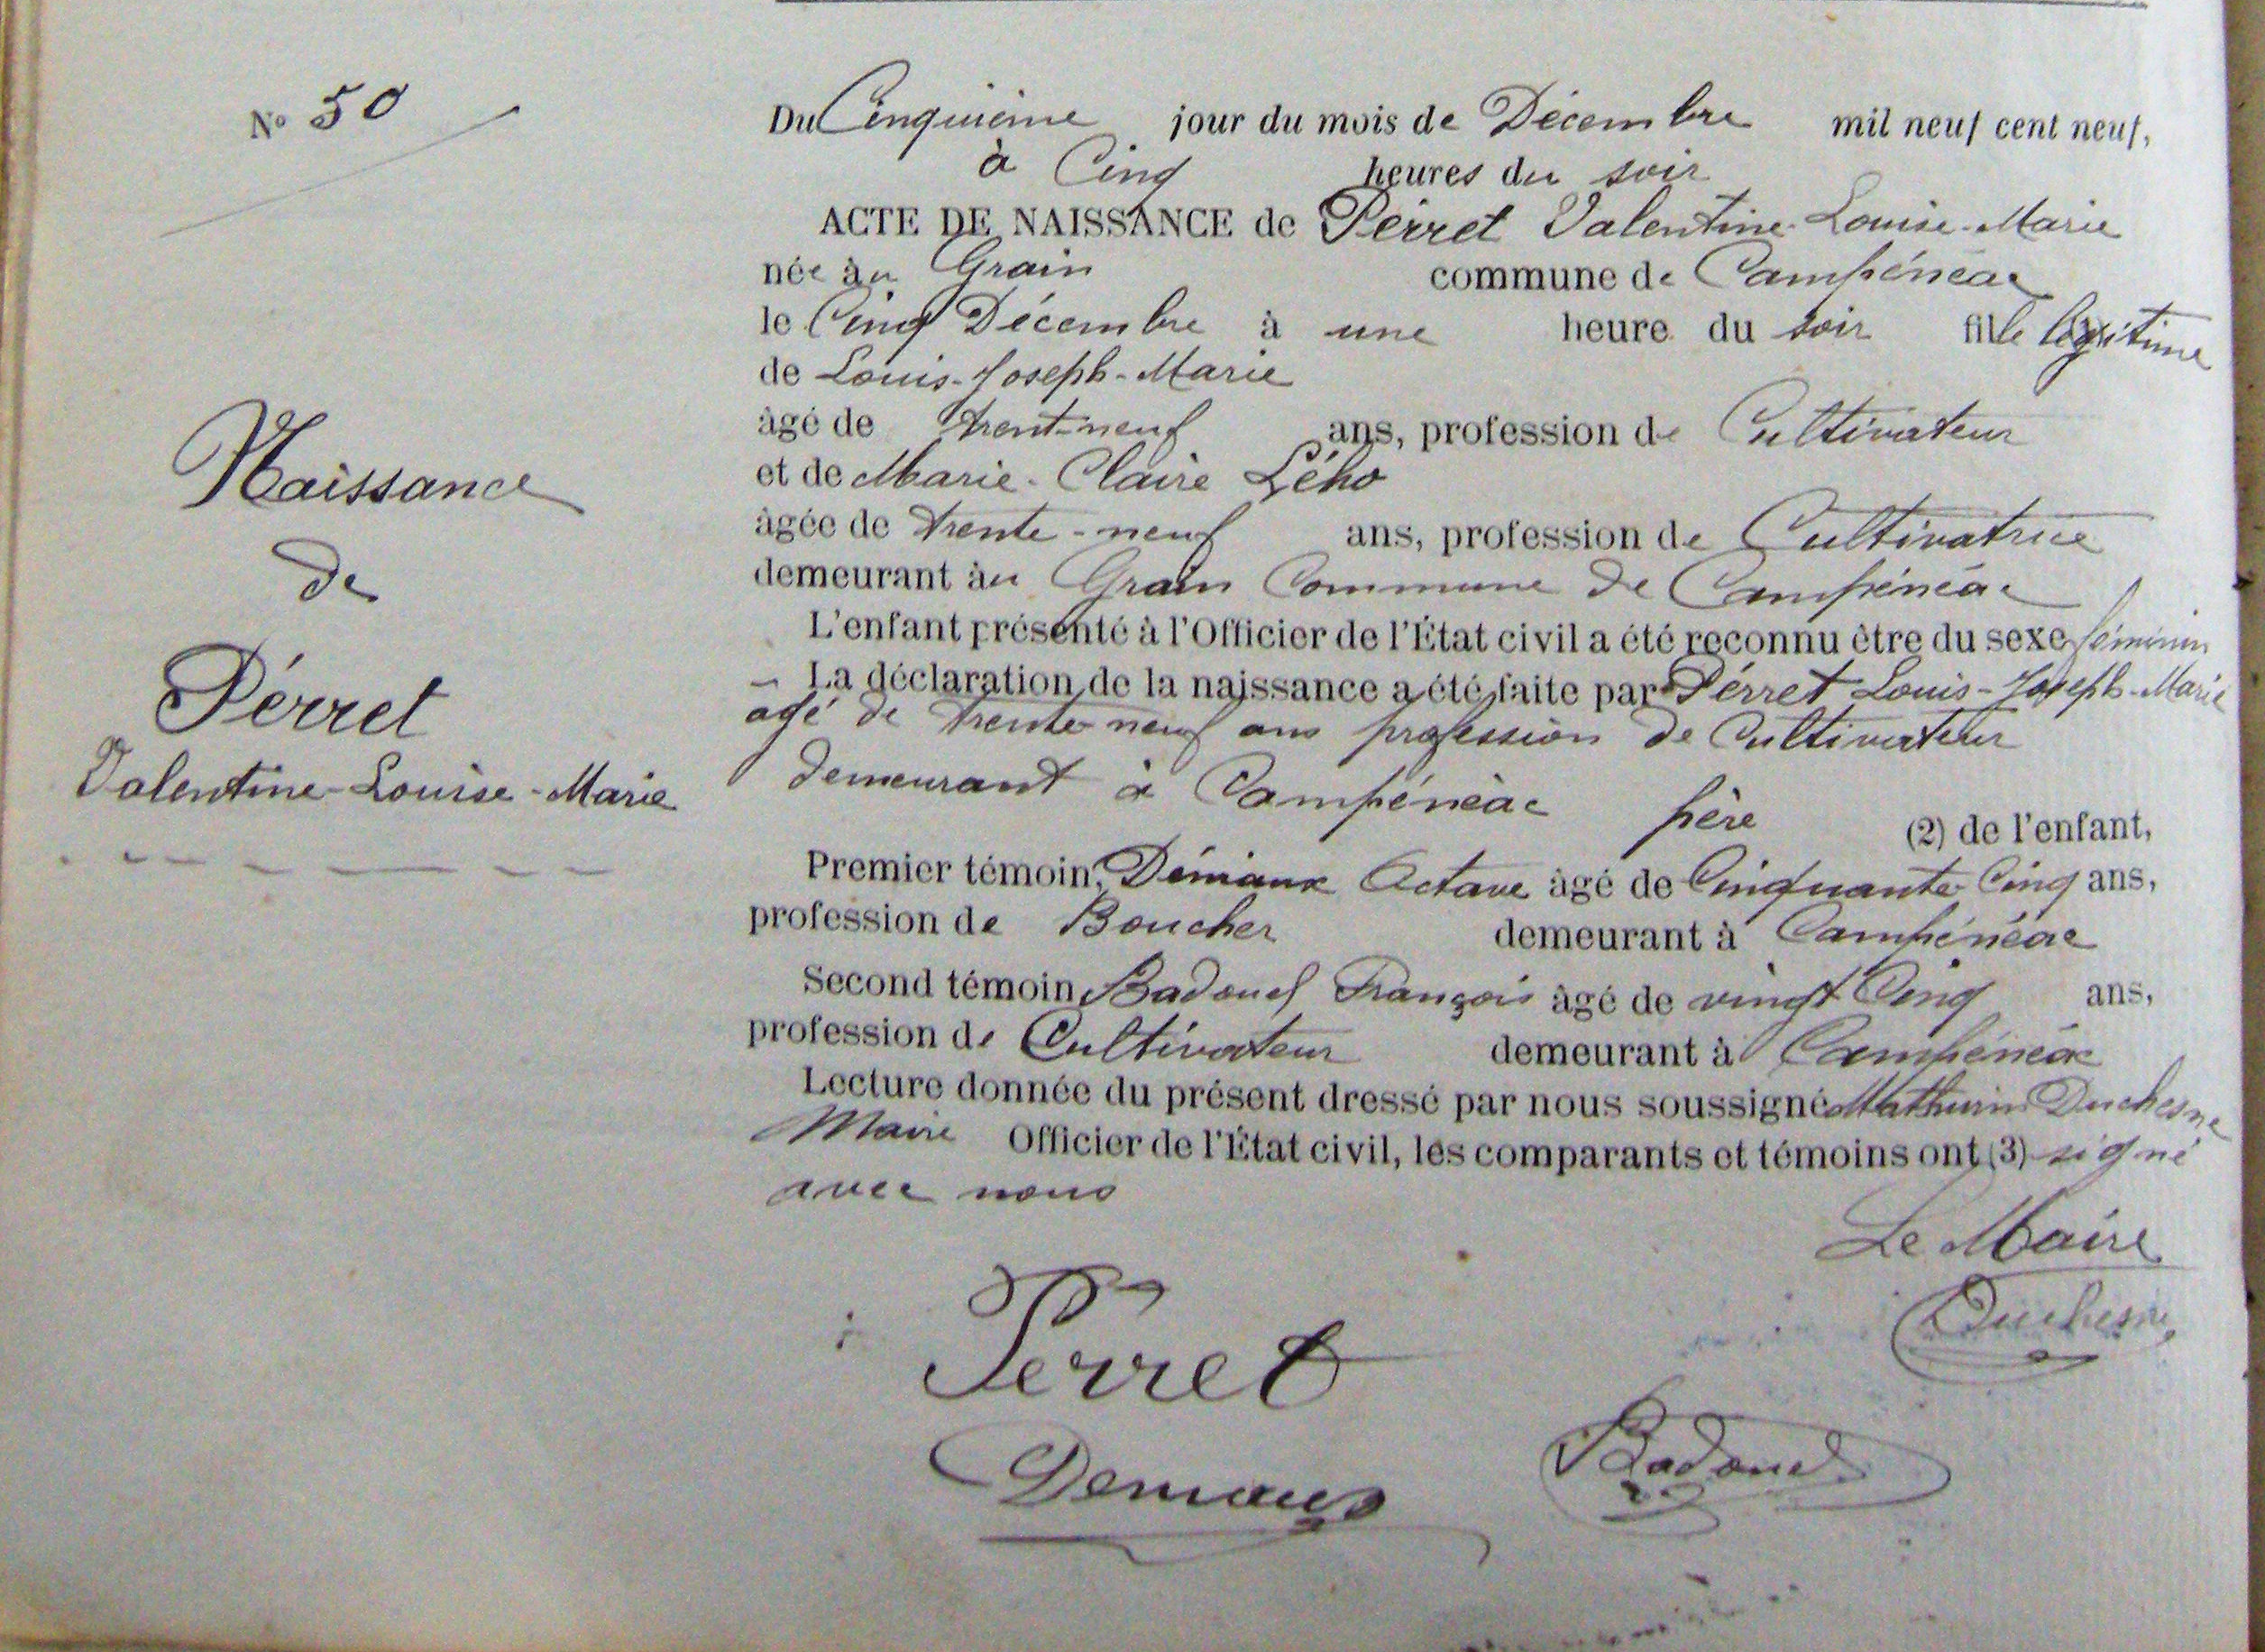 N° 50
Du Cinquième jour du mois de Décembre mil neuf cent neuf,
à Cinq heures du soir
ACTE DE NAISSANCE de Pérret Valentine-Louise-Marie
née au Grain commune de Campénéac
le Cinq Décembre à une heure du soir fille légitime
de Louis-Joseph-Marie
âgé de trent-neuf ans, profession de Cultivateur
et de Marie-Claire Lého
âgée de trente-neuf ans, profession de Cultivatrice
demeurant àu Grain Commune de Campénéac
L'enfant présenté à l'Officier de l'État civil a été reconnu être du sexe féminin
La déclaration de la naissance a été faite par Pérret Louis-Joseph-Marie
agé de trente neuf ans profession de Cultivateur
demeurant à Campénéac père (2) de l'enfant,
Premier témoin, Démiaux Octave âgé de Cinquante Cinq ans,
profession de Boucher demeurant à Campénéac
Second témoin, Badouel François âgé de vingt Cinq ans,
profession de Cultivateur demeurant à Campénéac
Lecture donnée du présent dressé par nous soussigné Mathurin Duchesne
Maire Officier de l'État civil, les comparants et témoins ont (3) signé
avec nous
Naissance
de
Pérret
Valentine-Louise-Marie
Le Maire
Duchesne
Perret
Demiaux
Badouel